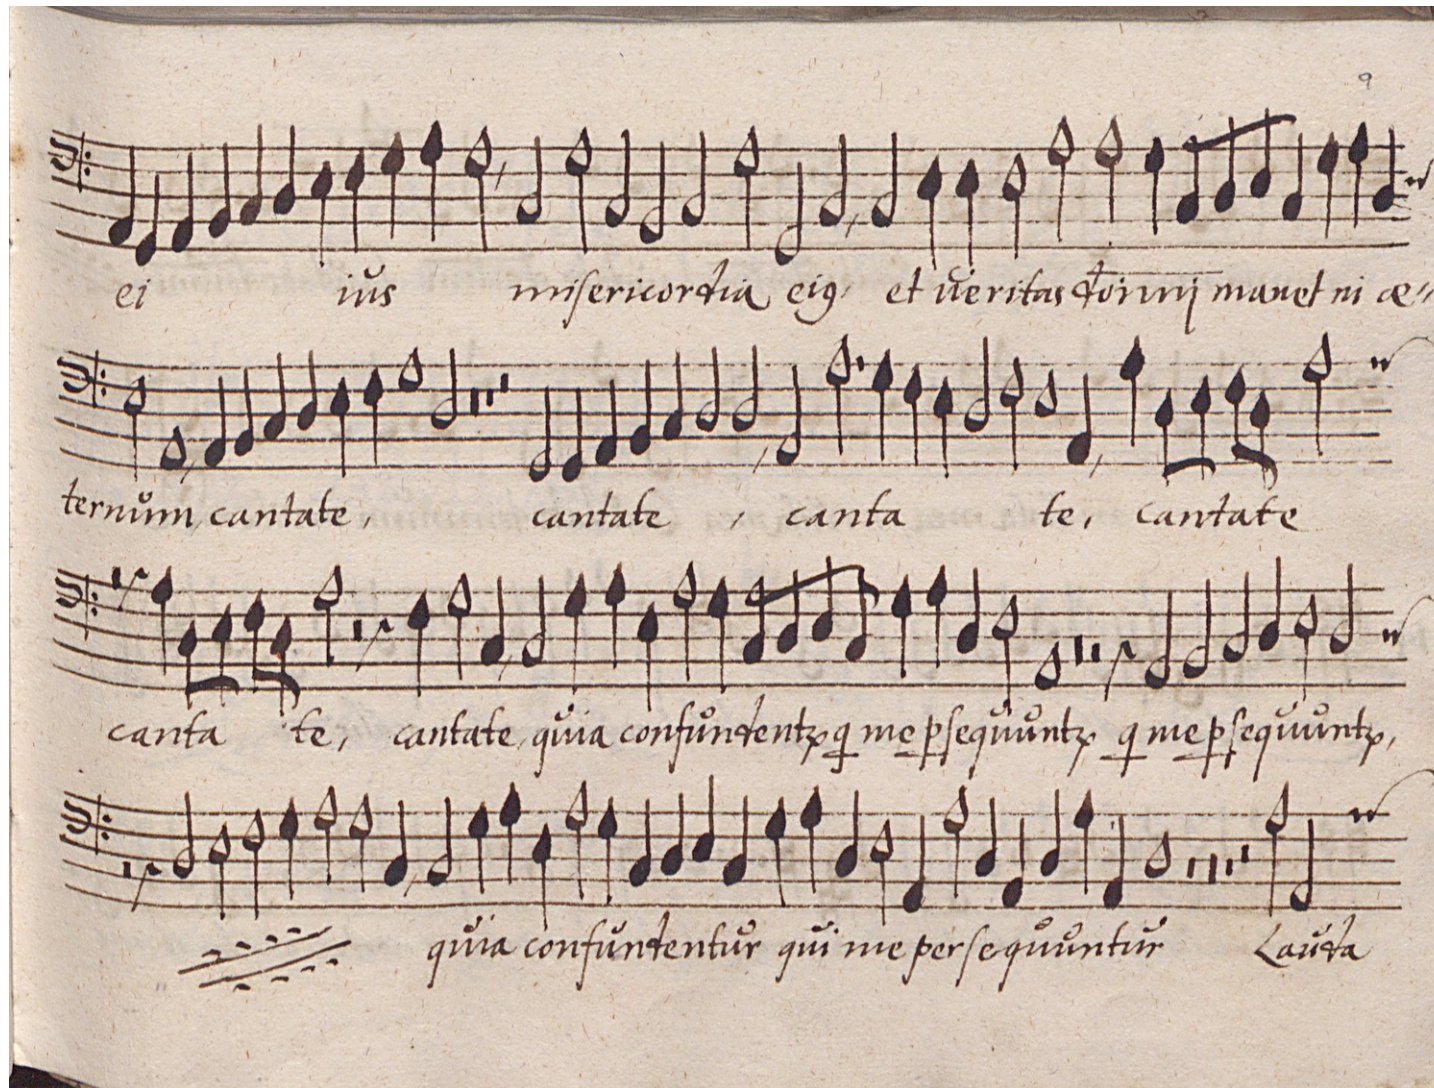 9
ei ius misericordia eiꝰ et veritas dom̄nj manet ni æ=
ternum, cantate, cantate, canta te, cantate
canta te, cantate, quia confundentꝝ q me ꝑsequuntꝝ q me ꝑsequuntꝝ,
quia confundentur qui me persequuntur Lauda